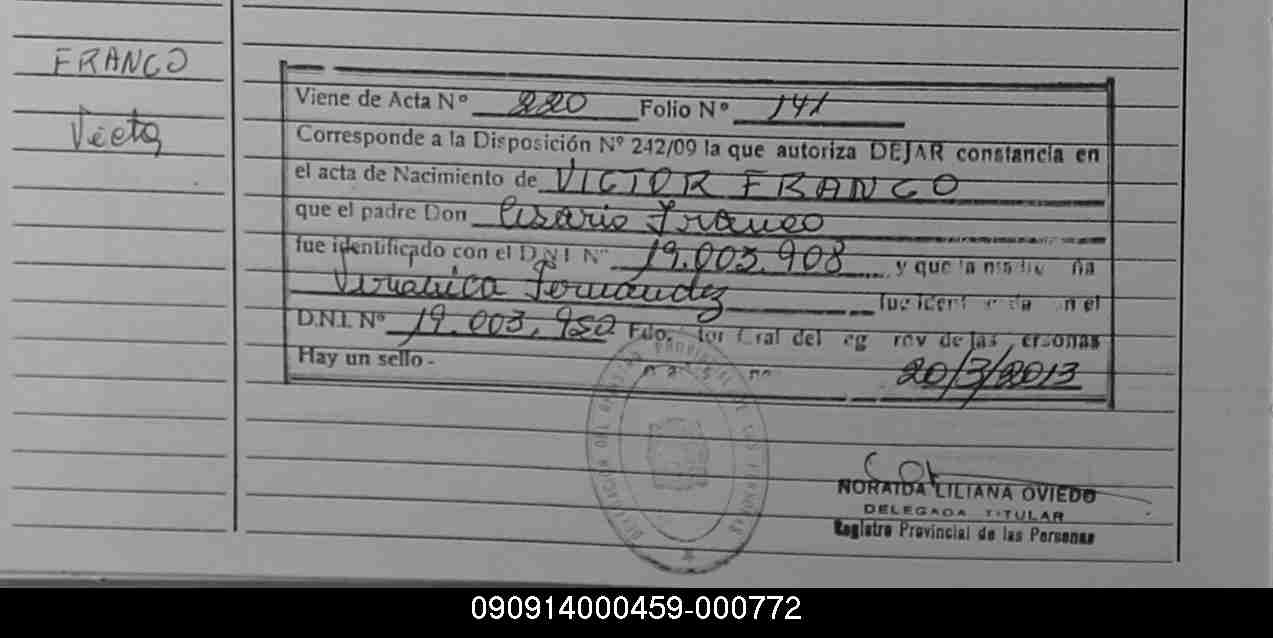 FRANCO
Victor
Viene de Acta Nº 220 Folio Nº 141
Corresponde a la Disposición Nº 242/09 la que autoriza DEJAR constancia en
el acta de Nacimiento de VICTOR FRANCO
que el padre Don Cesario Franco
fue identificado con el D.N.I. Nº 19.003.908 y que la madre
Veronica Fernandez fue
D.N.I. Nº 19.003.950 Fdo. Gral del de las
Hay un sello - 20/3/2013
NORAIDA LILIANA OVIEDO
DELEGADA TITULAR
Registro Provincial de las Personas
090914000459-000772